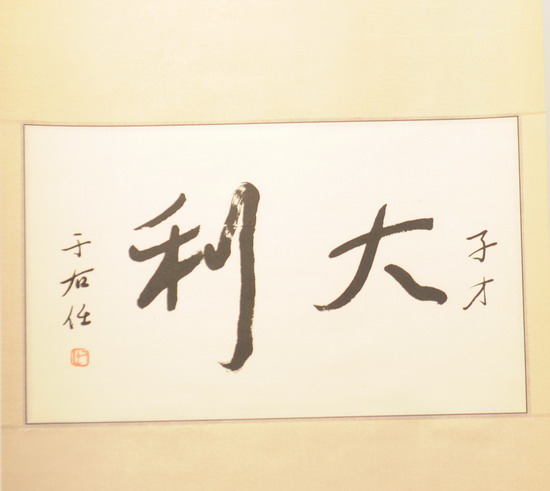 子才
大利
于右任